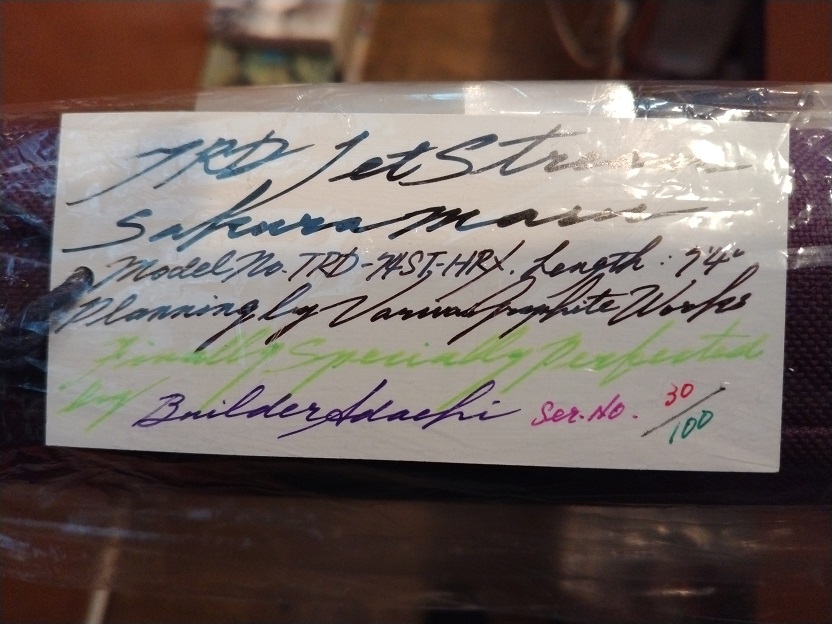 TRD JetStream
Sakura masu
Model No. TRD-74ST-HRX. Length: 7'4"
Planning by Varivas Graphite Works
Finally Specially Perfected
by Builder Adachi Ser. No. 30/100